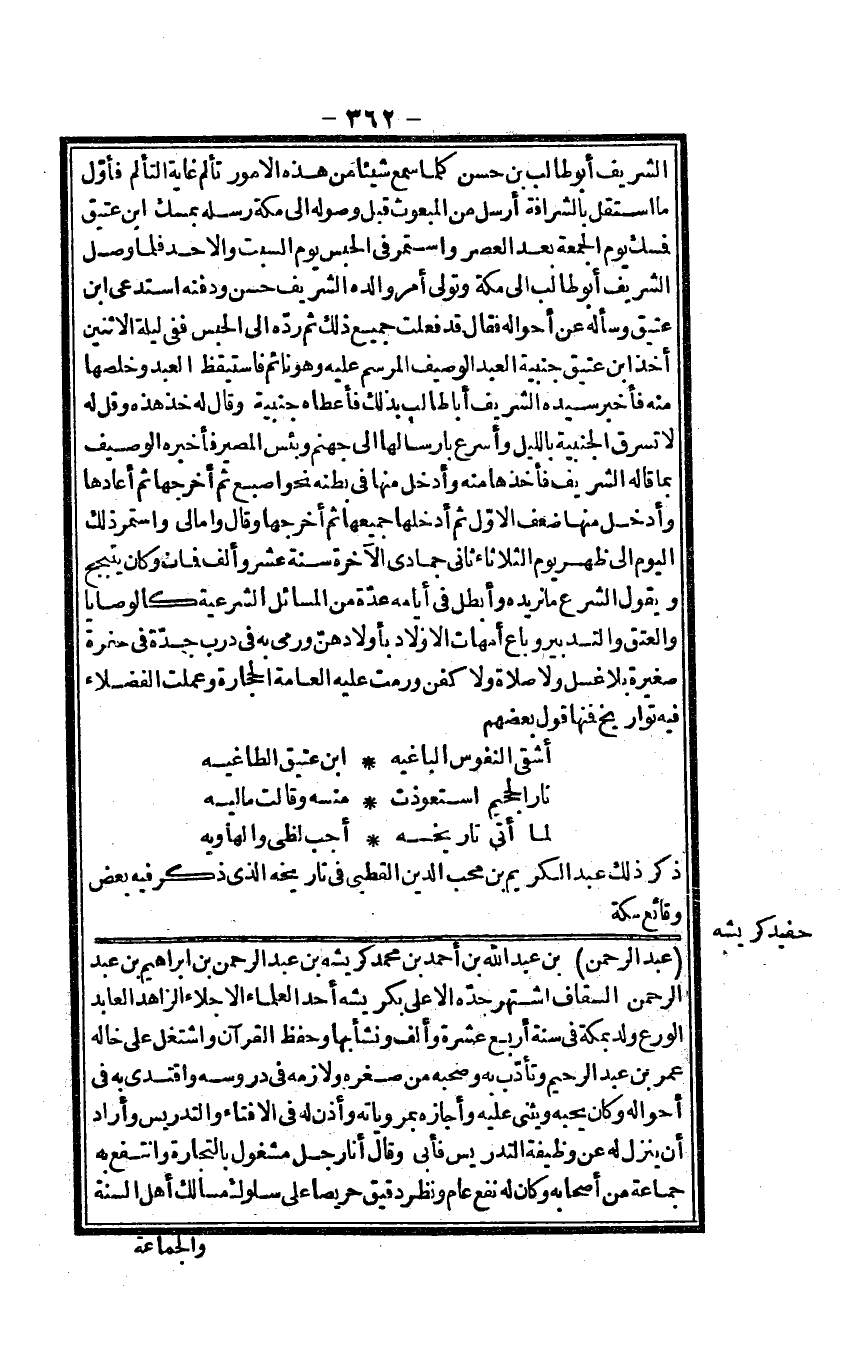 - ٣٦٢ -
الشريف أبو طالب بن حسن كلما سمع شيئا من هذه الامور تألم غاية التألم فأوّل
ما استقل بالشرافة أرسل من المبعوث قبل وصوله الى مكة رسله بمسك ابن عتيق
فمسك يوم الجمعة بعد العصر واستمر فى الحبس يوم السبت والاحد فلما وصل
الشريف أبو طالب الى مكة وتولى أمر والده الشريف حسن ودفنه استدعى ابن
عتيق وسأله عن أحواله فقال قد فعلت جميع ذلك ثم ردّه الى الحبس ففى ليلة الاثنين
أخذ ابن عتيق جنبية العبد الوصيف المرسم عليه وهو نائم فاستيقظ العبد وخلصها
منه فأخبر سيده الشريف أبا طالب بذلك فأعطاه جنبية وقال له خذ هذه وقل له
لا تسرق الجنبية بالليل وأسرع بارسالها الى جهنم وبئس المصير فأخبره الوصيف
بما قاله الشريف فأخذها منه وأدخل منها فى بطنه نحو اصبع ثم أخرجها ثم أعادها
وأدخل منها ضعف الاوّل ثم أدخلها جميعها ثم أخرجها وقال وا مالى واستمر ذلك
اليوم الى ظهر يوم الثلاثاء ثانى جمادى الآخرة سنة عشر وألف فمات وكان يتبجح
ويقول الشرع ما نريده وأبطل فى أيامه عدّة من المسائل الشرعية كالوصايا
والعتق والتدبير وباع أمهات الاولاد بأولادهنّ ورمى به فى درب جدّة فى حفرة
صغيرة بلا غسل ولا صلاة ولا كفن ورمت عليه العامة الحجارة وعملت الفضلاء
فيه تواريخ فمنها قول بعضهم
أشقى النفوس الباغيه * ابن عتيق الطاغيه
نار الجحيم استعوذت * منه وقالت ماليه
لما أتى تاريخه * أجب لظى والهاويه
ذكر ذلك عبد الكريم بن محب الدين القطبى فى تاريخه الذى ذكر فيه بعض
وقائع مكة
حفيد كريشه
(عبد الرحمن) بن عبد الله بن أحمد بن محمد كريشه بن عبد الرحمن بن ابراهيم بن عبد
الرحمن السقاف اشتهر جدّه الاعلى بكريشه أحد العلماء الاجلاء الزاهد العابد
الورع ولد بمكة فى سنة أربع عشرة وألف ونشأ بها وحفظ القرآن واشتغل على خاله
عمر بن عبد الرحيم وتأدّب به وصحبه من صغره ولازمه فى دروسه واقتدى به فى
أحواله وكان يحبه ويثنى عليه وأجازه بمروياته وأذن له فى الافتاء والتدريس وأراد
أن ينزل له عن وظيفة التدريس فأبى وقال أنا رجل مشغول بالتجارة وانتفع به
جماعة من أصحابه وكان له نفع عام ونظر دقيق حريصا على سلوك مسالك أهل السنة
والجماعة